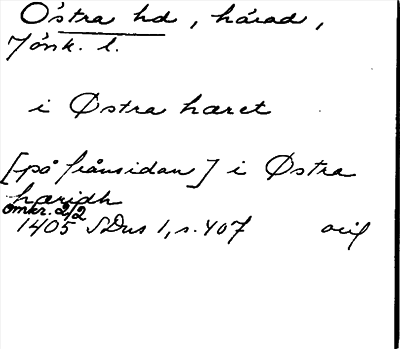 Östra hd, härad,
Jönk. l.
i Østra hæret
[på frånsidan] i Østra
hæridh
omkr. 2/2
1405 SDns 1, s. 407 orig